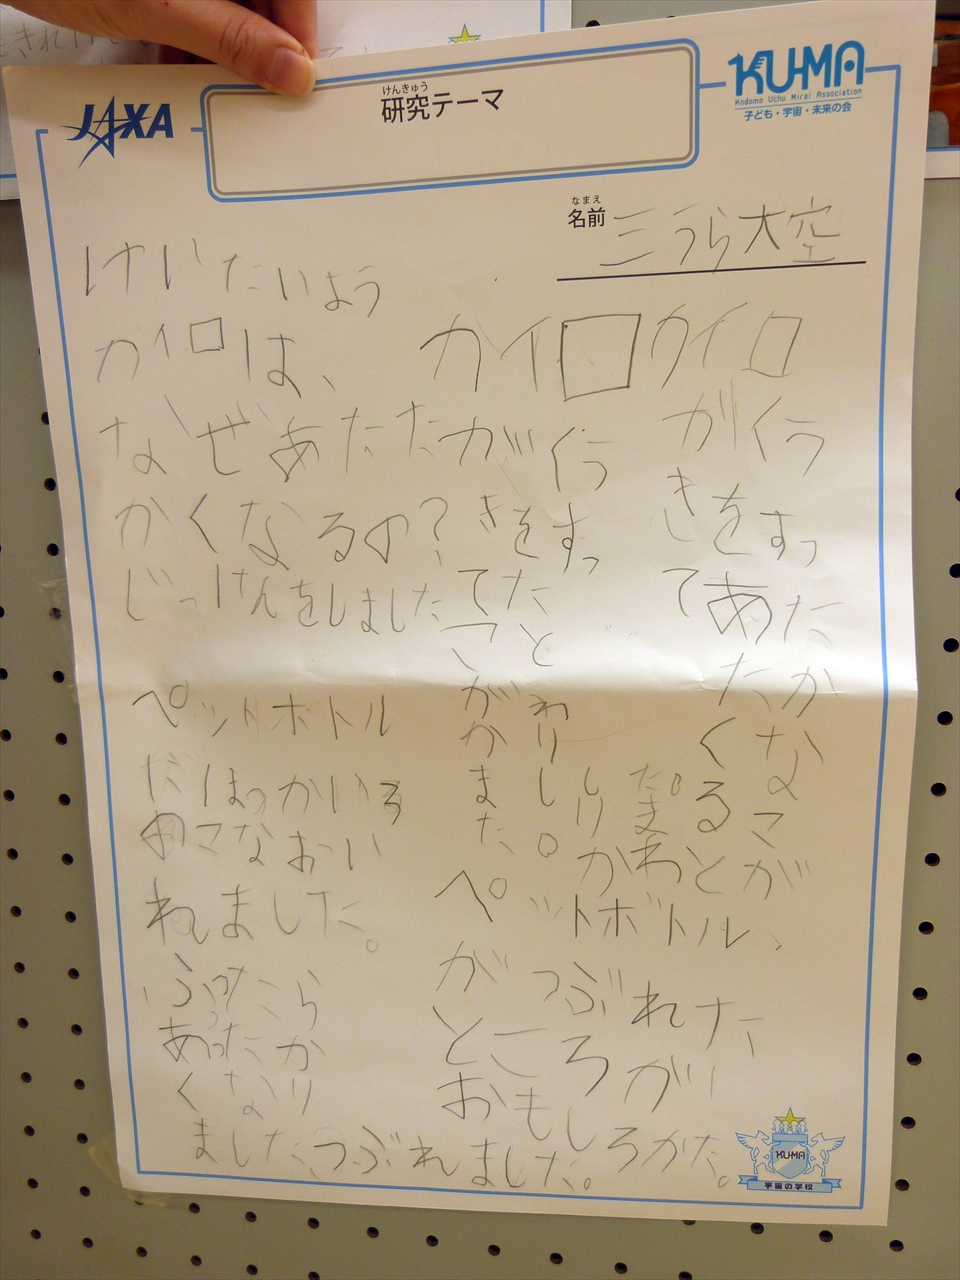 JAXA
けんきゅう
研究テーマ
KU-MA
Kodomo Uchu Mirai Association
子ども・宇宙・未来の会
なまえ
名前 三うら大空
けいたいよう
カイロは、
なぜあたた
かくなるの?
じっけんをしました
ペットボトル
れました。
ふったら
あったか
くなり
ましたつぶれました。
カイロ
がくう
きをすっ
てた
ペットボトル、
がつぶれた
ところが
おもしろかた。
カイロ
がくう
きをすっ
て
あたた
かくなる
ことが
わかりました。
KU-MA
宇宙の学校